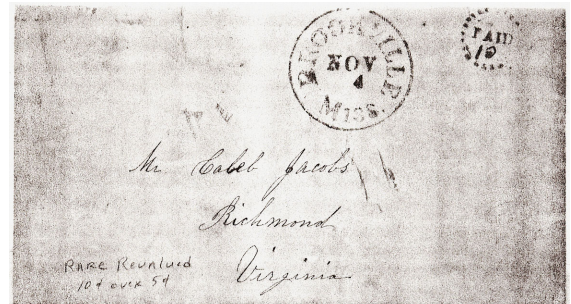 BROOKVILLE
NOV
4
MISS.
PAID
10
Mr Caleb Jacobs
Richmond
Virginia
RARE Revalued
10¢ over 5¢